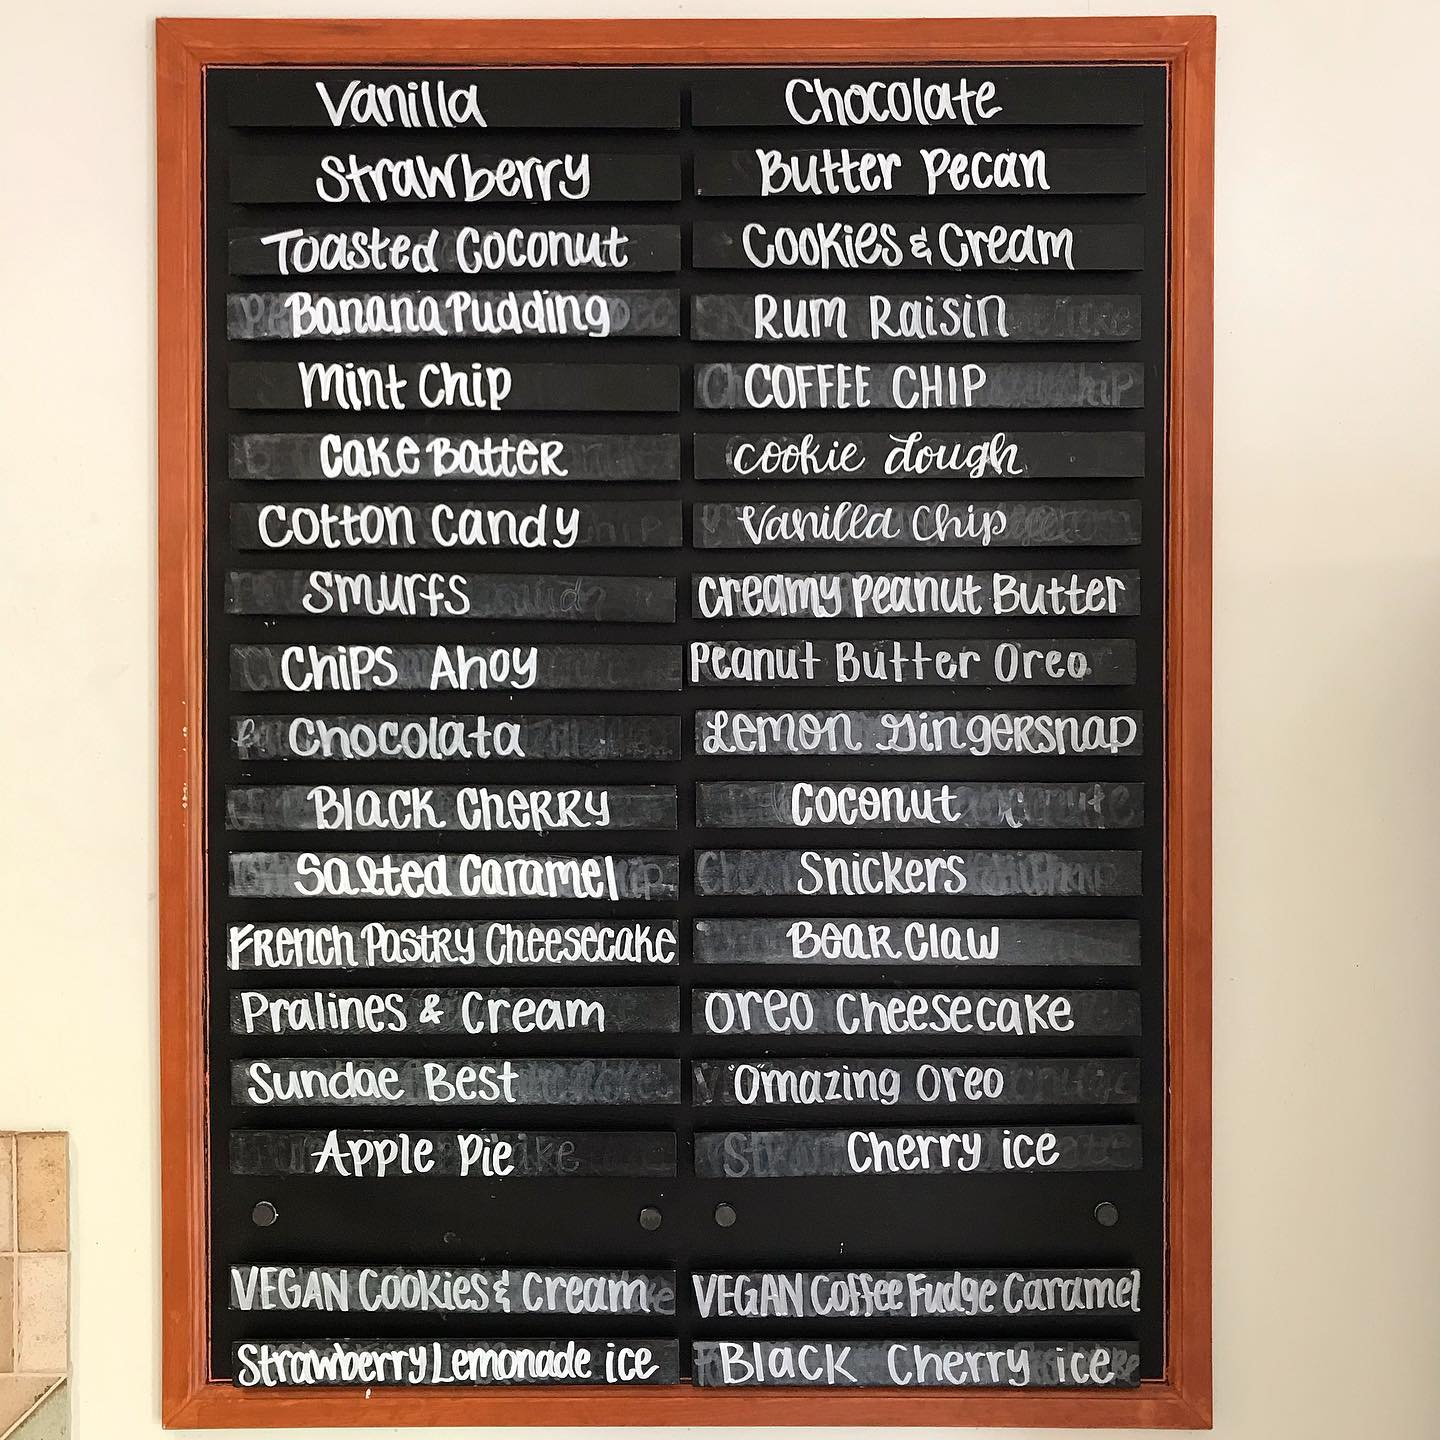 Vanilla
Chocolate
Strawberry
Butter Pecan
Toasted Coconut
Cookies & Cream
Banana Pudding
Rum Raisin
Mint Chip
COFFEE CHIP
Cake Batter
cookie dough
Cotton Candy
Vanilla Chip
Smurfs
Creamy Peanut Butter
Chips Ahoy
Peanut Butter Oreo
Chocolata
Lemon Gingersnap
Black Cherry
Coconut
Salted Caramel
Snickers
French Pastry Cheesecake
Bear Claw
Pralines & Cream
Oreo Cheesecake
Sundae Best
"O"mazing Oreo
Apple Pie
Cherry ice
VEGAN Cookies & Cream
VEGAN Coffee Fudge Caramel
Strawberry Lemonade ice
Black Cherry ice